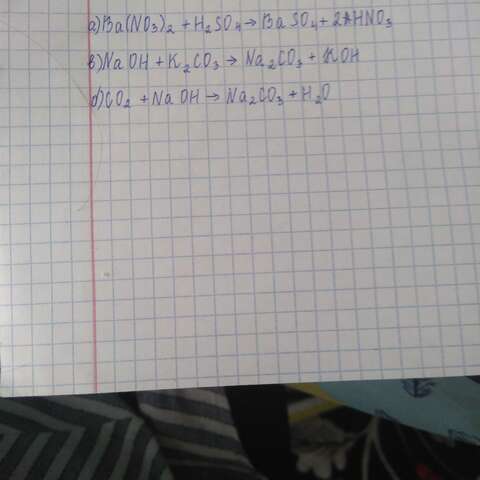 а) Ba(NO₃)₂ + H₂SO₄ → BaSO₄ + 2HNO₃
в) NaOH + K₂CO₃ → Na₂CO₃ + KOH
д) CO₂ + NaOH → Na₂CO₃ + H₂O